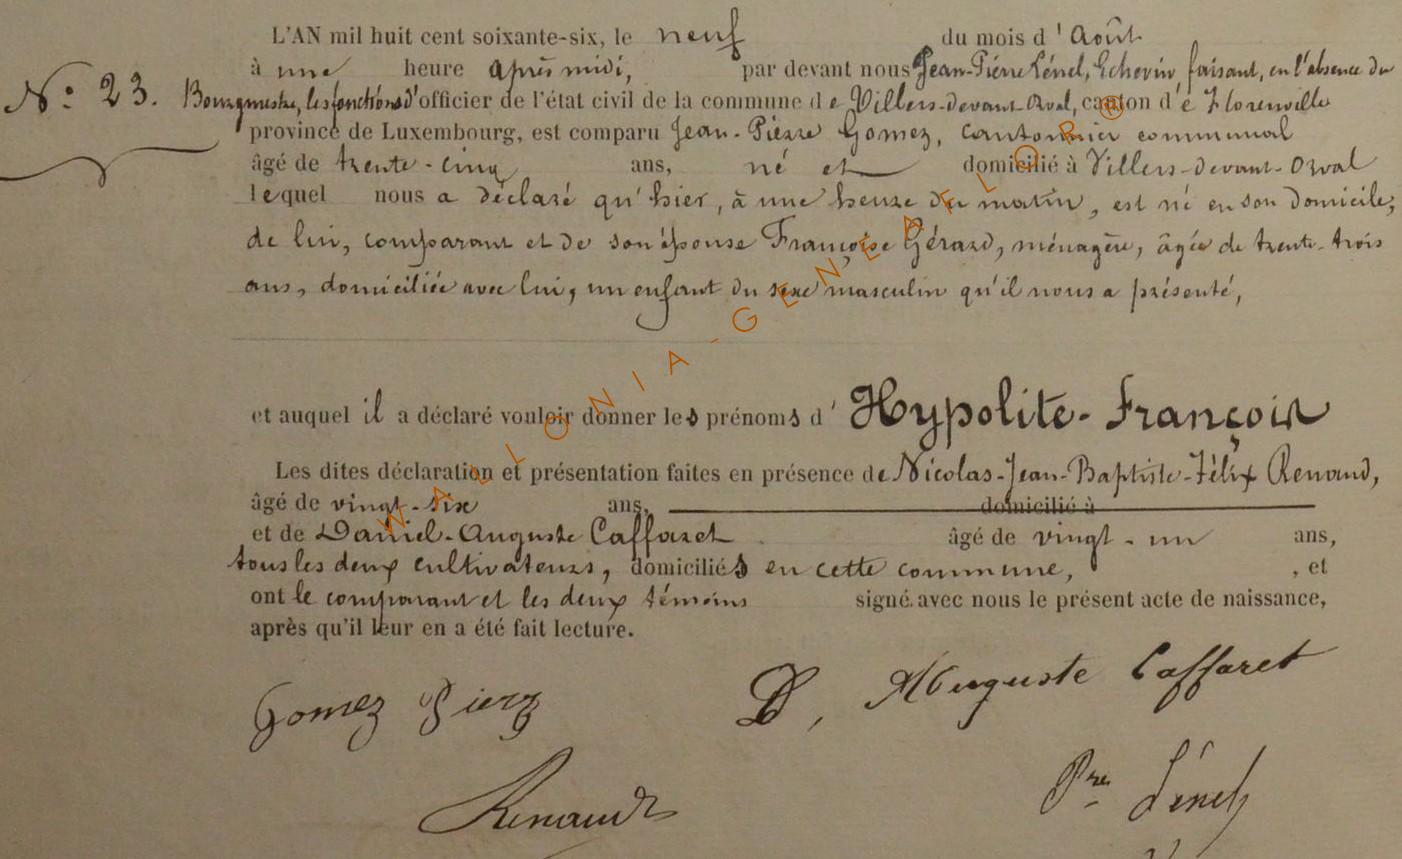 L'AN mil huit cent soixante-six, le neuf du mois d'Août
à une heure après midi, par devant nous Jean-Pierre Lénel, Echevin faisant, en l'absence du
N° 23. Bourgmestre, les fonctions d'officier de l'état civil de la commune de Villers-devant-Orval, canton de Florenville
province de Luxembourg, est comparu Jean-Pierre Gomez, cantonnier communal
âgé de trente-cinq ans, né et domicilié à Villers-devant-Orval
lequel nous a déclaré qu'hier, à une heure du matin, est né en son domicile,
de lui, comparant et de son épouse Françoise Gérard, ménagère, âgée de trente-trois
ans, domiciliée avec lui, un enfant du sexe masculin qu'il nous a présenté,
et auquel il a déclaré vouloir donner les prénoms d'Hypolite-François
Les dites déclaration et présentation faites en présence de Nicolas-Jean-Baptiste-Félix Renaud,
âgé de vingt-six ans, domicilié à
et de Daniel-Auguste Caffaret âgé de vingt-un ans,
tous les deux cultivateurs, domiciliés en cette commune, , et
ont le comparant et les deux témoins signé avec nous le présent acte de naissance,
après qu'il leur en a été fait lecture.
Gomez Pierz D, Auguste Caffaret
Renaud Pre Lénel
WALLONIA-GENEAFLOR®